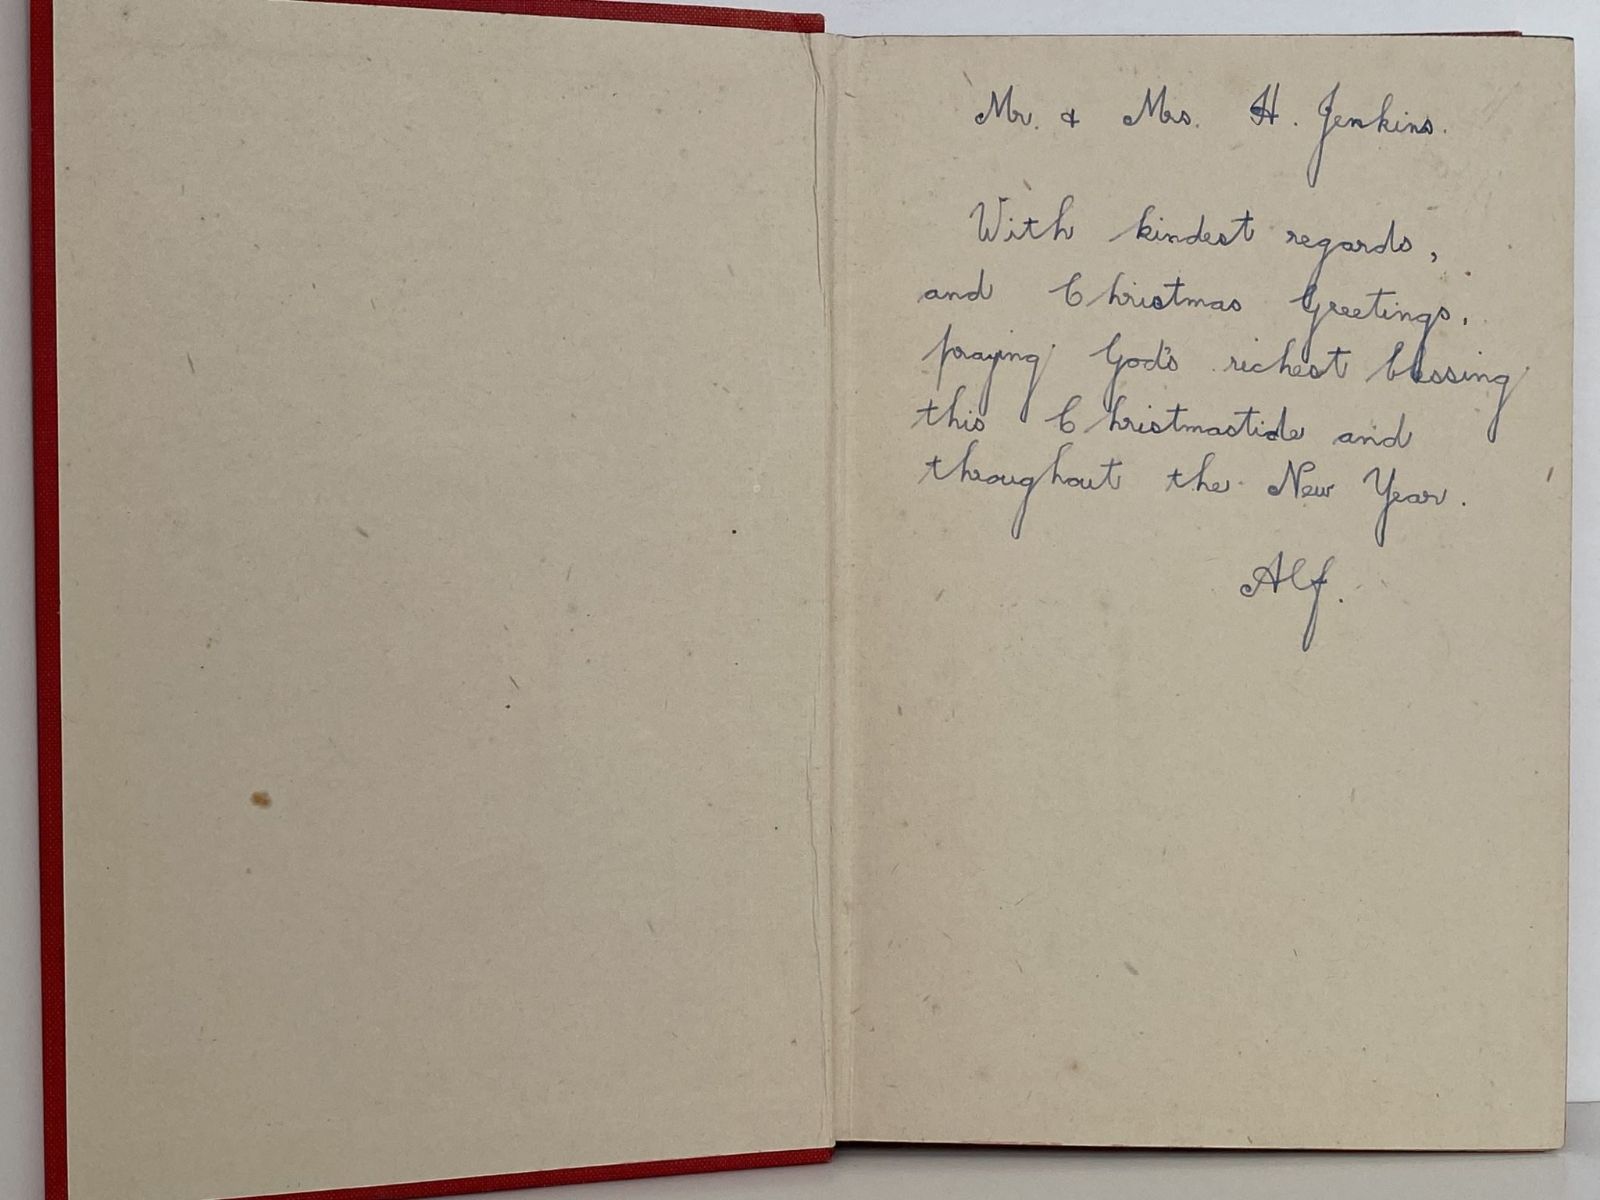 Mr. & Mrs. H. Jenkins.
With kindest regards,
and Christmas Greetings,
praying God's richest blessing
this Christmastide and
throughout the New Year.
Alf.